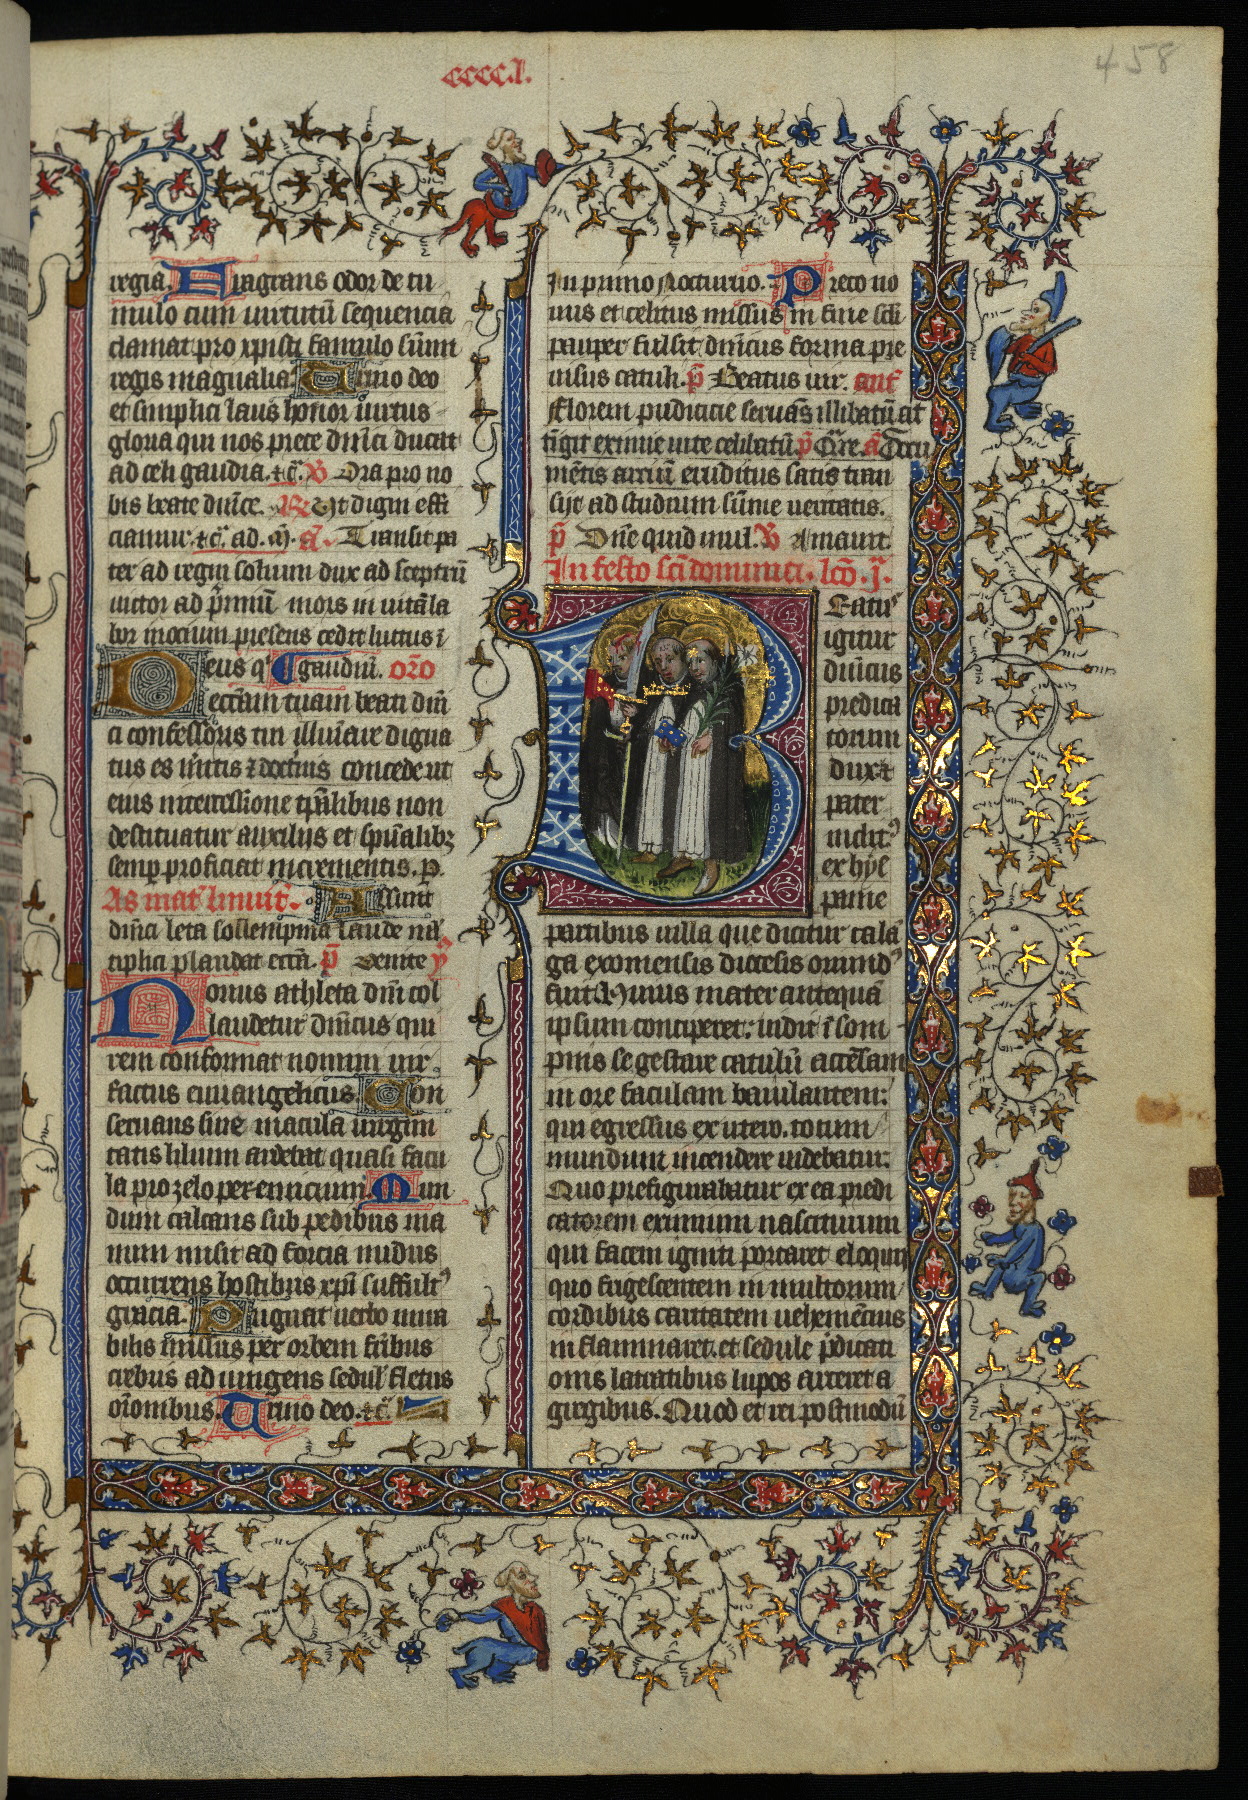 ccccl.
458
regia. Flagrans odor de tu
mulo cum virtutū sequencia
clamat pro xpisti famulo sūmi
regis magnalia. Trino deo
et simplici laus honor virtus
gloria qui nos prece dnīci ducat
ad celi gaudia. ℣ Ora pro no
bis beate dnīce. ℟ Ut digni effi
ciamur. ad. Transit pa
ter ad regni solium dux ad sceptrū
victor ad p̄miū mors in vitā la
bor mocium presens cedit luctus ī
gaudiū. oro
Deus q
ecctam tuam beati dnī
ci confessoris tui illuīare digna
tus es mītis ⁊ doctīnis concede ut
eius intercessione tpālibus non
destituatur auxiliis et spūalibꝫ
semp proficiat incrementis. p.
Ad mat Invit. Assunt
dnīci leta sollempnia laude ml
tiplici plaudat ecctā. p̄ Venite
Nouus athleta dnī col
laudetur dnīcus qui
rem conformat nomini vir
factus ewangelicus Con
seruans sine macula virgini
tatis lilium ardebat quasi facu
la pro zelo pereuncium. Mun
dum calcans sub pedibus ma
num misit ad forcia nudus
occurrens hostibus xpī suffult
gracia. Pugnat verbo mira
bilis missus per orbem fr̄ibus
crebris adiungens sedul fletus
or̄onibus. Trino deo.
In primo Nocturno. Preco no
uus et celitus missus in fine scli
pauper fulsit dnīcus forma pre
visus catuli. p̄ Beatus vir. ant
Florem pudicicie seruās illibatū at
tīgit eximie vite celibatū. p̄ Q̄re. a Docu
mētis arcium eruditus satis tran
siit ad studium sūme veritatis.
p̄ Dn̄e quid mul. ℣ Amauit.
In festo scī dominici. lcō. j.
Beatus
igitur
dnīcus
predica
torum
dux ⁊
pater
inclit
ex hys
panie
partibus villa que dicitur cala
ga exomensis diocesis oriund
fuit Huius mater antequā
ipsum conciperet: vidit ī som
pnis se gestare catulū accēsam
in ore faculam baiulantem:
qui egressus ex utero. totum
mundum incendere videbatur:
Quo prefigurabatur ex ea predi
catorem eximium nasciturum
qui facem igniti portaret eloquii
quo frigescentem in multorum
cordibus caritatem vehemēcius
inflammaret. et sedule p̄dicati
onis latratibus lupos arceret a
gregibus. Quod et rei postmodū